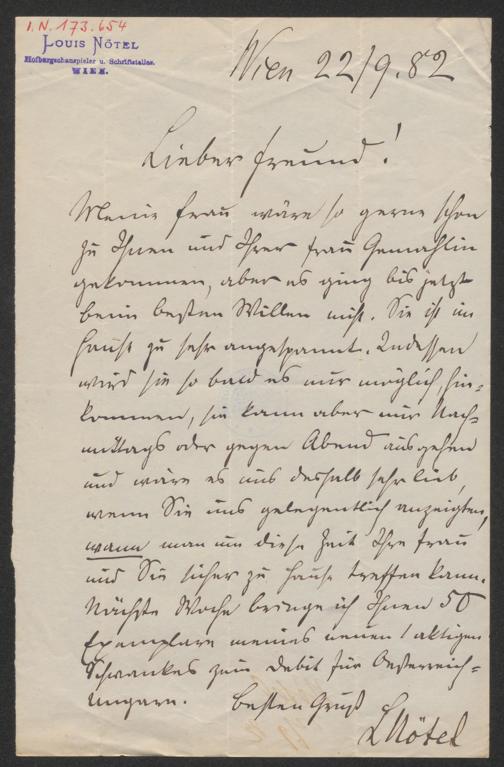 I.N. 173.654
LOUIS NÖTEL
Hofburgschauspieler u. Schriftsteller.
WIEN.
Wien 22/9. 82
Lieber Freund!
Meine Frau wäre so gerne schon
zu Ihnen und Ihrer Frau Gemahlin
gekommen, aber es ging bis jetzt
beim besten Willen nicht. Sie ist im
Hause zu sehr angespannt. Indessen
wird sie so bald es nur möglich, hin-
kommen, sie kann aber nur Nach-
mittags oder gegen Abend ausgehen
und wäre es uns deshalb sehr lieb,
wenn Sie uns gelegentlich anzeigten,
wann man um diese Zeit Ihre Frau
und Sie sicher zu Hause treffen kann.
Nächste Woche bringe ich Ihnen 50
Exemplare meines neuen 1 aktigen
Schwankes zum Debit für Oesterreich-
Ungarn.
Besten Gruß
LNötel